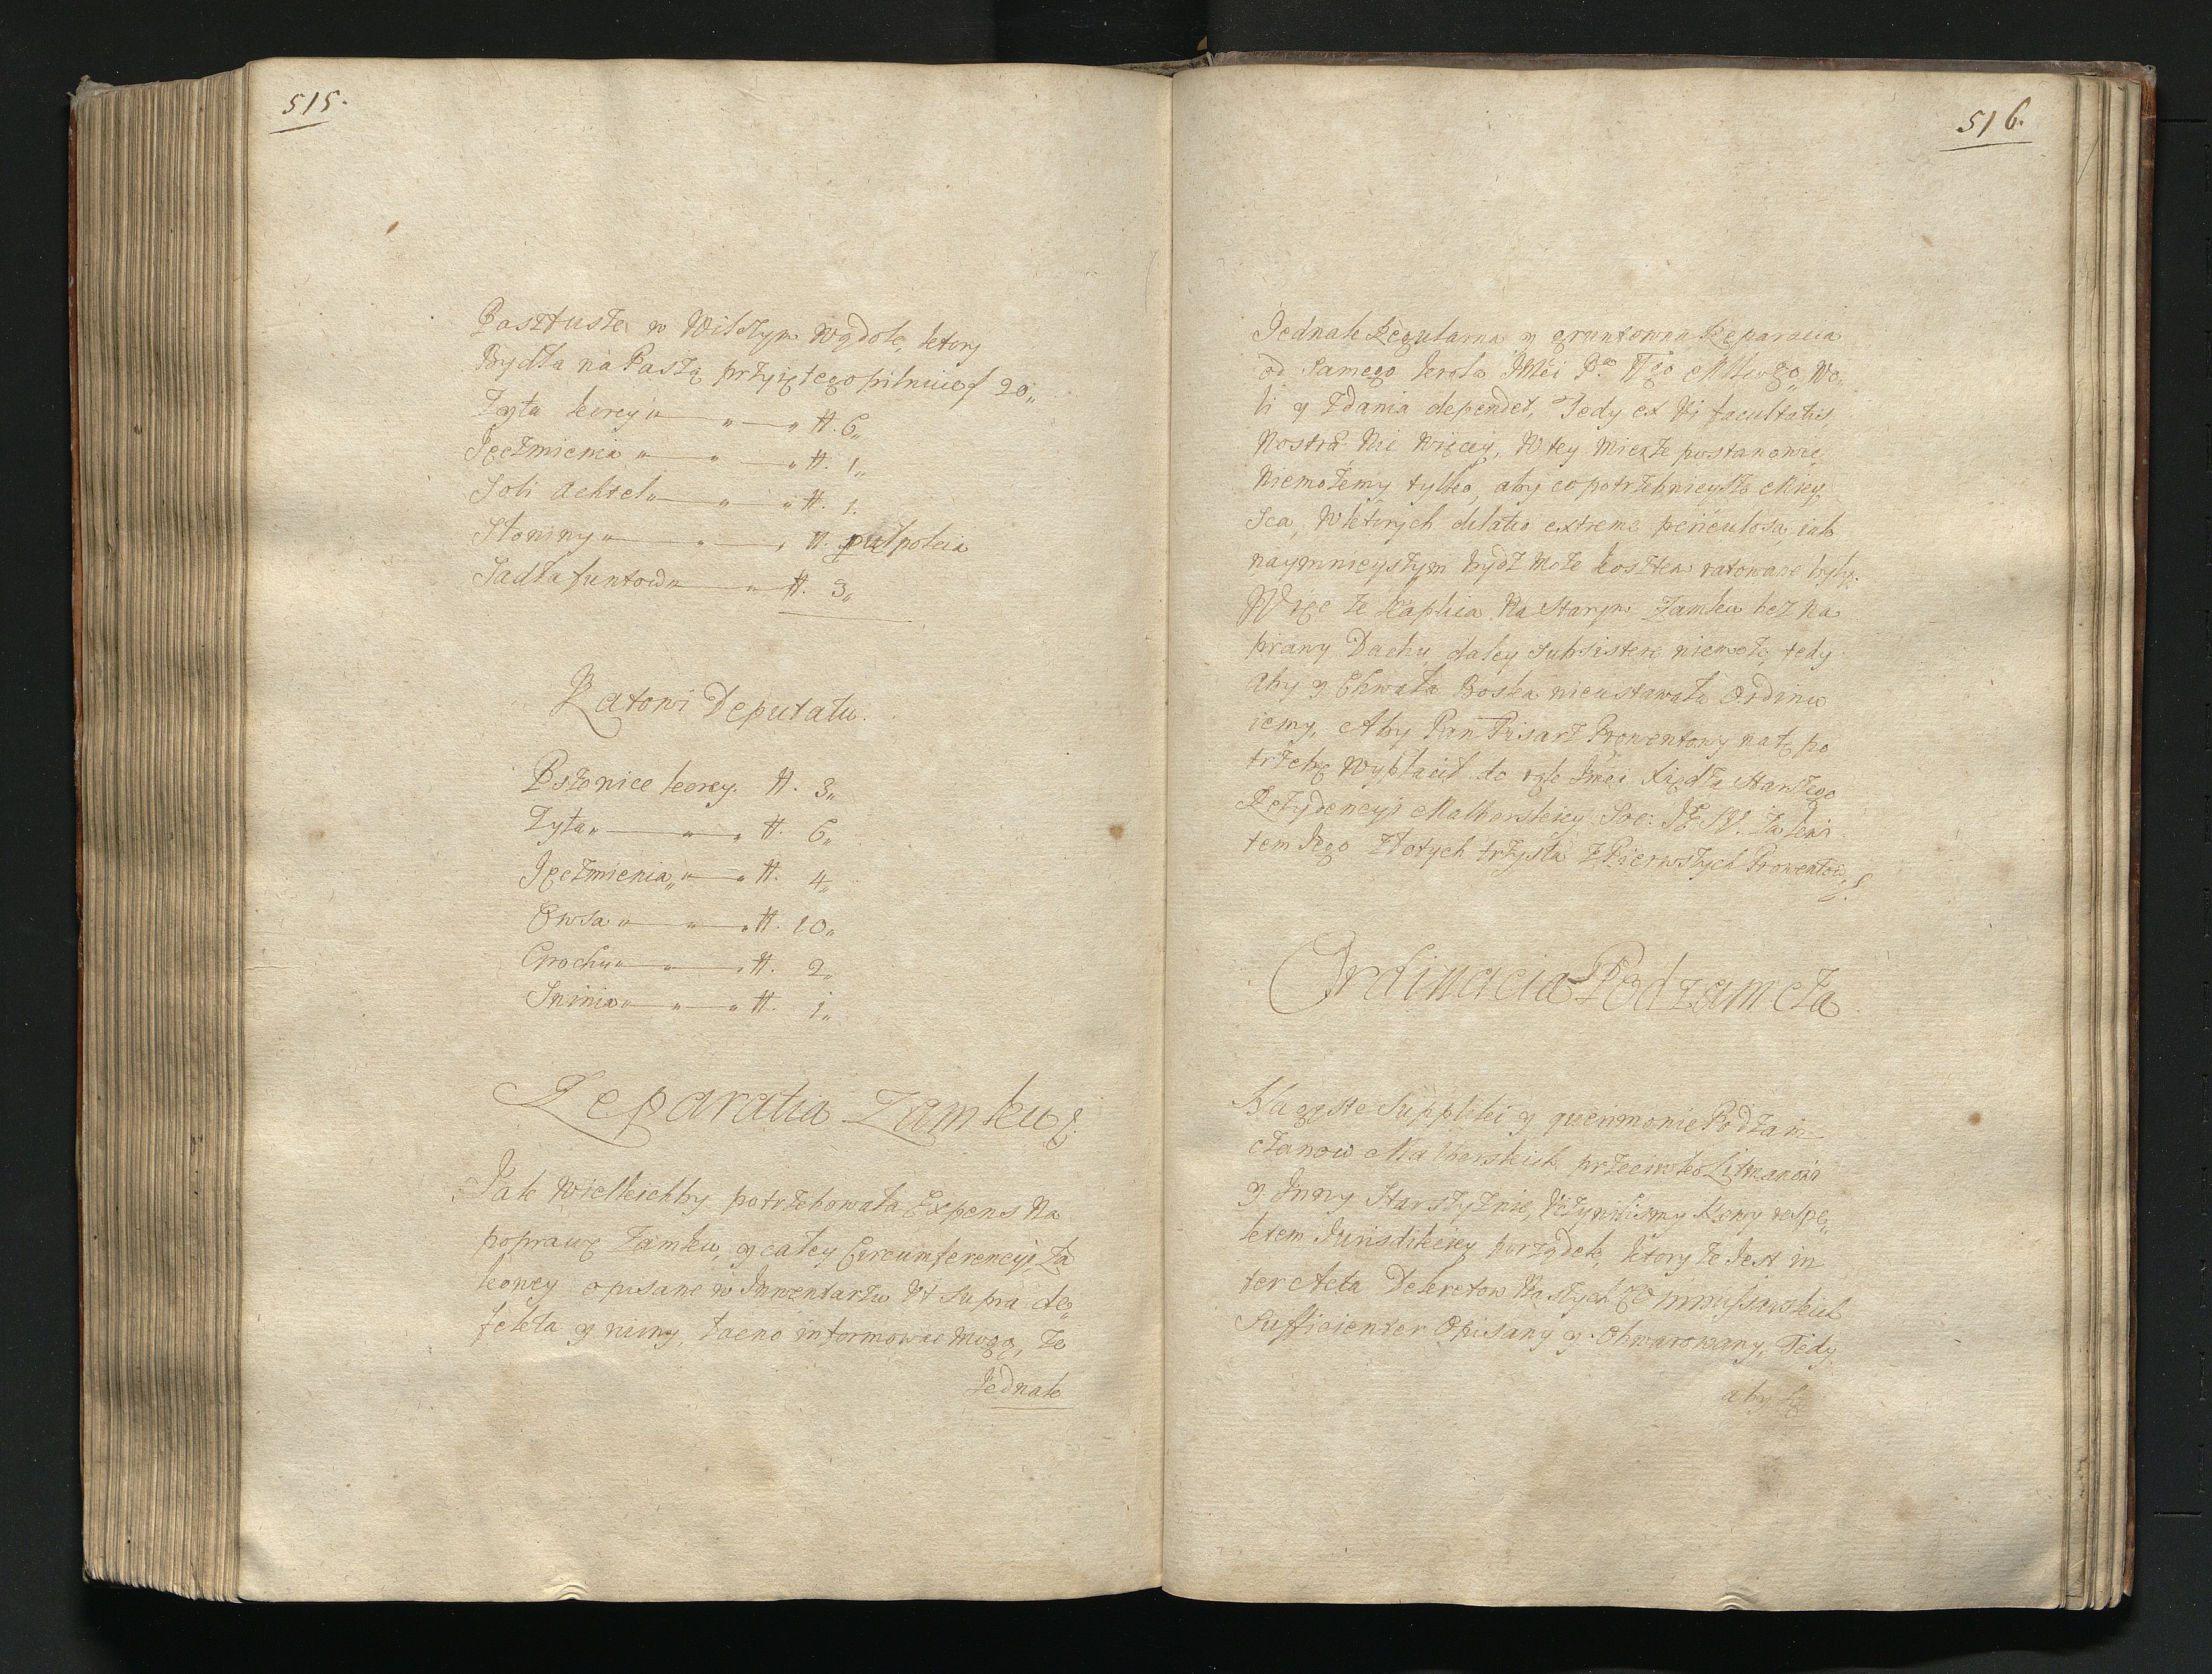 515.
Pasztuszei w Wilczym Wądole, ktory
Bydła na Paszą przyiętego pilnuie f 20„
Zyta korcy „ — „ — „ ₶. 6„
Jęczmienia „ — „ — „ ₶. 1„
Soli Achtel „ — „ — „ ₶. 1.
Słoniny „ — „ — „ ₶. pułpolcia
Sadła funtow „ — „ ₶. 3„
Katowi Deputatu.
Pszenice korcy. ₶. 3„
Zyta „ — „ — „ ₶. 6„
Jęczmienia „ — „ ₶. 4„
Owsa „ — „ — „ ₶. 10„
Grochu „ — „ — „ ₶. 2„
Swinia „ — „ — „ ₶. 1„
Reparatia Zamku
Jak Wielkichby potrzebowała Expens Na
poprawę Zamku, y całey Circumferencyi Za
kowey opisane w Inwentarzu Vt Supra de„
fekta y ruiny, łacno informować mogą, że
Jednak
516.
Jednak Regularna y gruntowna Reparacia
od Samego Krola JMci Pa Ngo Młwgo, Wo„
li y Zdania dependet, Tedy ex Vi facultatis,
Nostra Nic Więcey, W tey Mierze postanowic
Niemożemy tylko, aby co potrzebnieysze Miey
Sca, W ktorych dilatio extreme periculosa, iak
naymnieyszym bydz Może kosztem ratowane były.
Więc że Kaplica Na Starym Zamku bez Na
prawy Dachu daley Subsistere niemoże, tedy
Aby y Chwała Boska nieustawała Ordinu
iemy, Aby Pan Pisarz Prowentowy na tę po
trzebę Wypłacił do rąk Jmci Xiędza Starszego
Rezydencyi Malborskiey Soc: JESV. Za kwi
tem Jego Złotych trzysta z Pierwszych Prowentow
Ordinacia Podzamcza
Na gęste Suppliki y querimonie Podzam
czanow Malborskich przeciwko Litmanowi
y Inny Starszyznie, Vczyniliśmy Nowy respe„
ktem Jurisdikciey porządek, ktory że Jest in
ter Acta Dekretow Naszych Commissarskich
Sufficienter Opisany y Obwarowany, Tedy
aby się